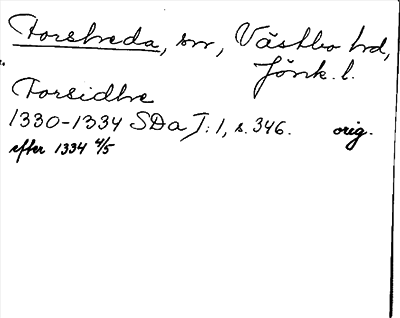 Forsheda, sn, Västbo hd,
Jönk. l.
Forsidhe
1330-1334 SDa I: 1, s. 346. orig.
efter 1334 4/5